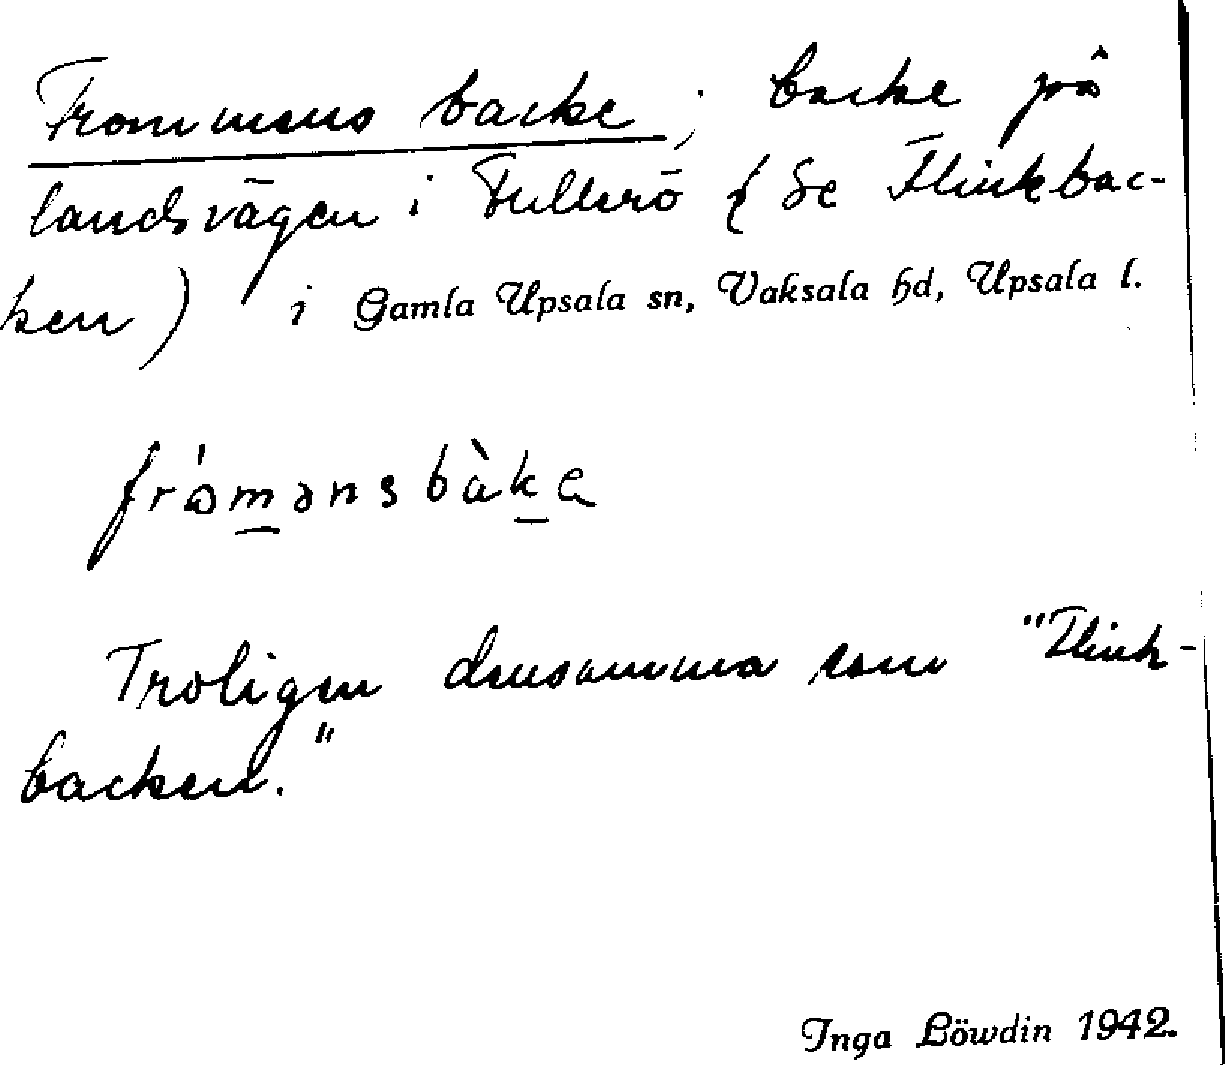 Frommens backe; backe på
landsvägen i Fullerö (se Flinkbac-
ken) i Gamla Upsala sn, Vaksala hd, Upsala l.
fròmənsbàkɑ
Troligen densamma som "Flink-
backen."
Inga Löwdin 1942.